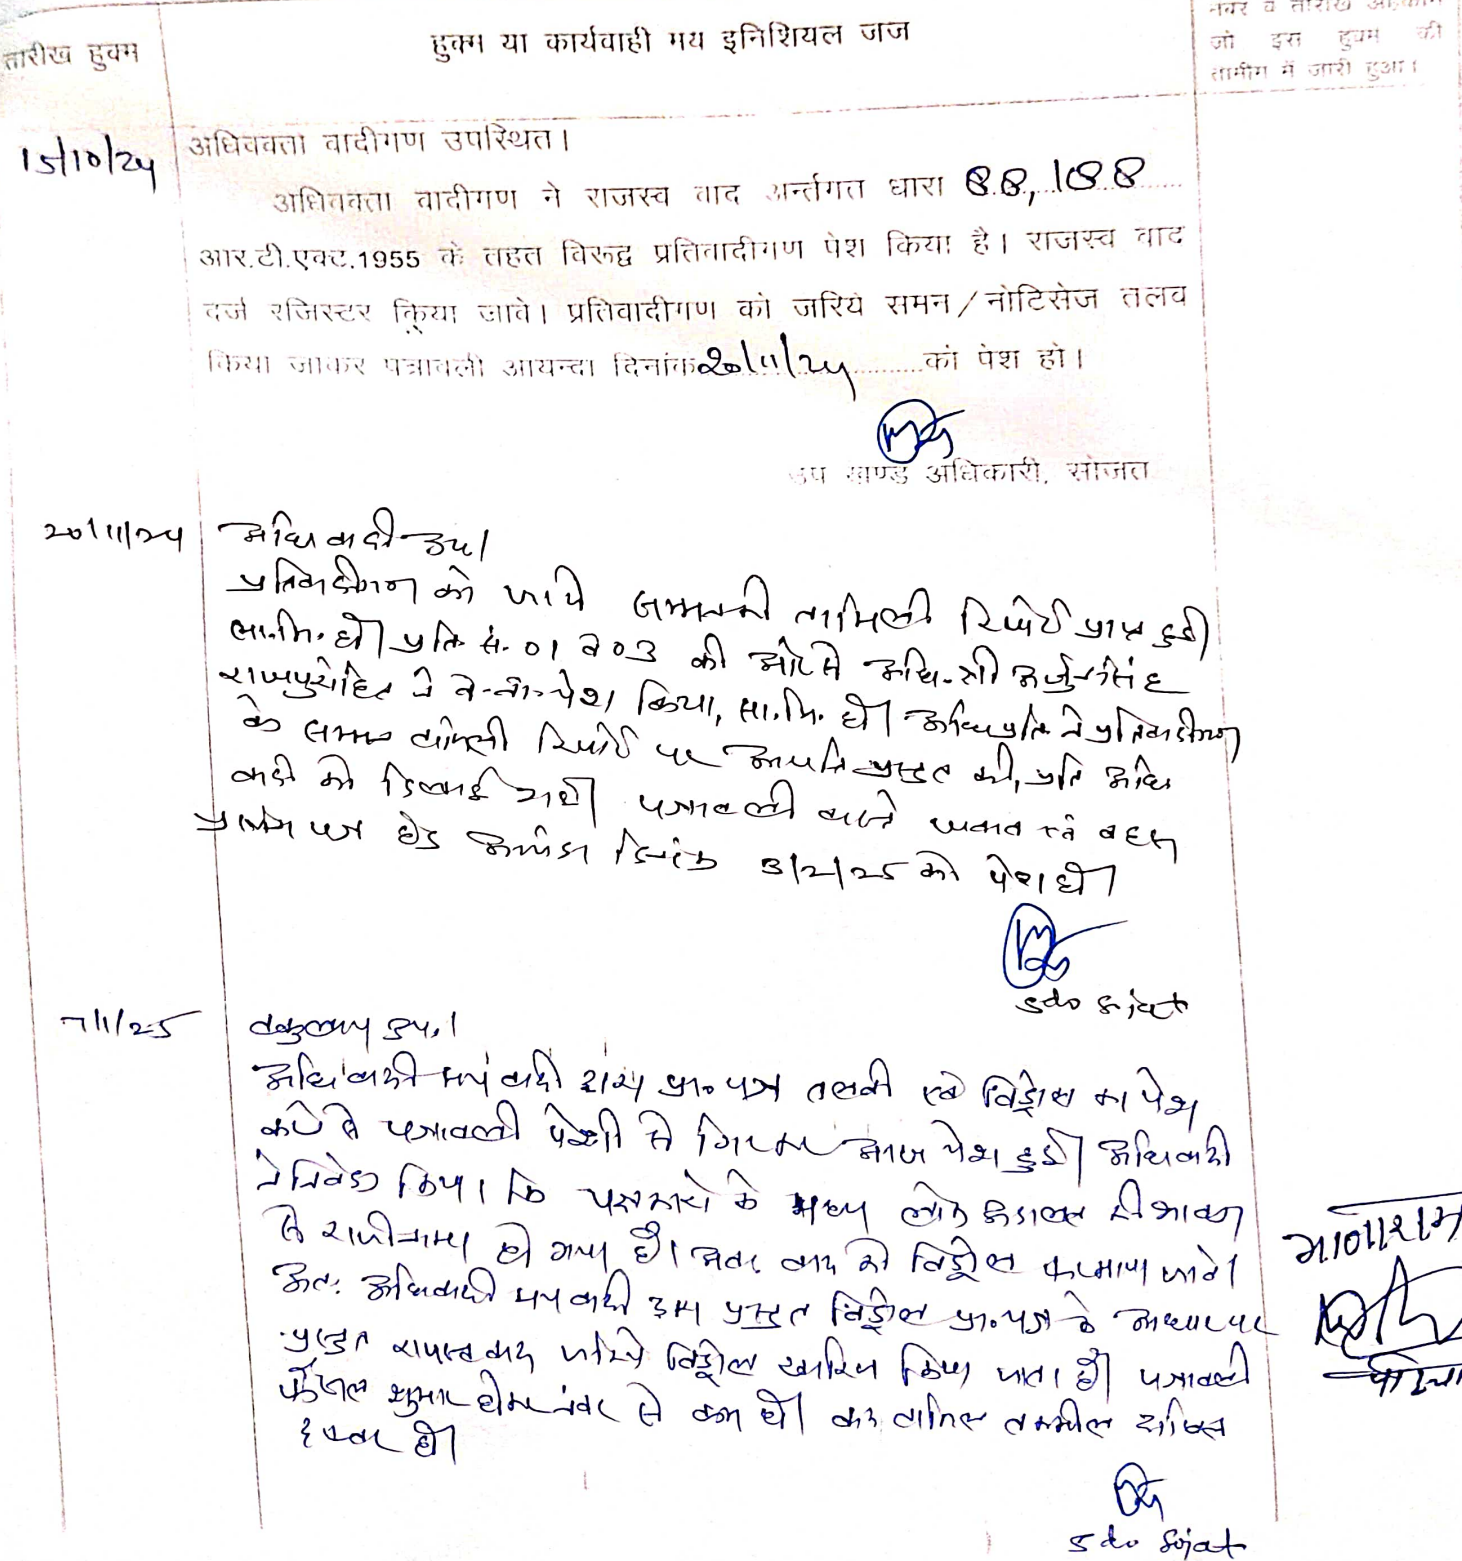 तारीख हुक्म
हुक्म या कार्यवाही मय इनिशियल जज
नंबर व तारीख अहकाम
जो इस हुक्म की
तामील में जारी हुआ।
15/10/24
अधिवक्ता वादीगण उपस्थित।
अधिवक्ता वादीगण ने राजस्व वाद अर्न्तगत धारा 88, 188
आर.टी.एक्ट.1955 के तहत विरूद्व प्रतिवादीगण पेश किया है। राजस्व वाद
दर्ज रजिस्टर किया जावे। प्रतिवादीगण को जरिये समन/नोटिसेज तलब
किया जाकर पत्रावली आयन्दा दिनांक 20/11/24 को पेश हो।
उप खण्ड अधिकारी, सोजत
20/11/24
अधि वादी उप।
प्रतिवादीगण को जरिये तामिली रिपोर्ट प्राप्त हुई।
शा.मि. हो। प्रति सं. 01 व 03 की ओर से अधि. श्री अर्जुनसिंह
राजपुरोहित ने व.ना. पेश किया, शा.मि. हो। अधि प्रति ने प्रतिवादीगण
के समन तामिली रिपोर्ट पर आपत्ति प्रस्तुत की, प्रति अधि
वादी को दिलाई गयी। पत्रावली वास्ते जवाब एवं बहस
प्रार्थना पत्र हेतु आयन्दा दिनांक 3/2/25 को पेश हो।
SDO Sojat
7/1/25
वकुलाय उप.।
अधि वादी मय वादी द्वारा प्रा. पत्र तलबी एवं विड्रोल का पेश
करने से पत्रावली पेशी से आज पेश हुई। अधि वादी
ने निवेदन किया कि पक्षकारो के मध्य लोक अदालत की भावना
से राजीनामा हो गया है। वाद को विड्रोल फरमाया जावे।
अतः अधिवादी मय वादी प्रस्तुत विड्रोल प्रा. पत्र के आधार पर
प्रस्तुत राजस्व वाद जरिये विड्रोल खारिज किया जाता है। पत्रावली
फैसल शुमार होकर नंबर से कम हो। बाद तामिल दाखिल
दफ्तर हो।
SDO Sojat